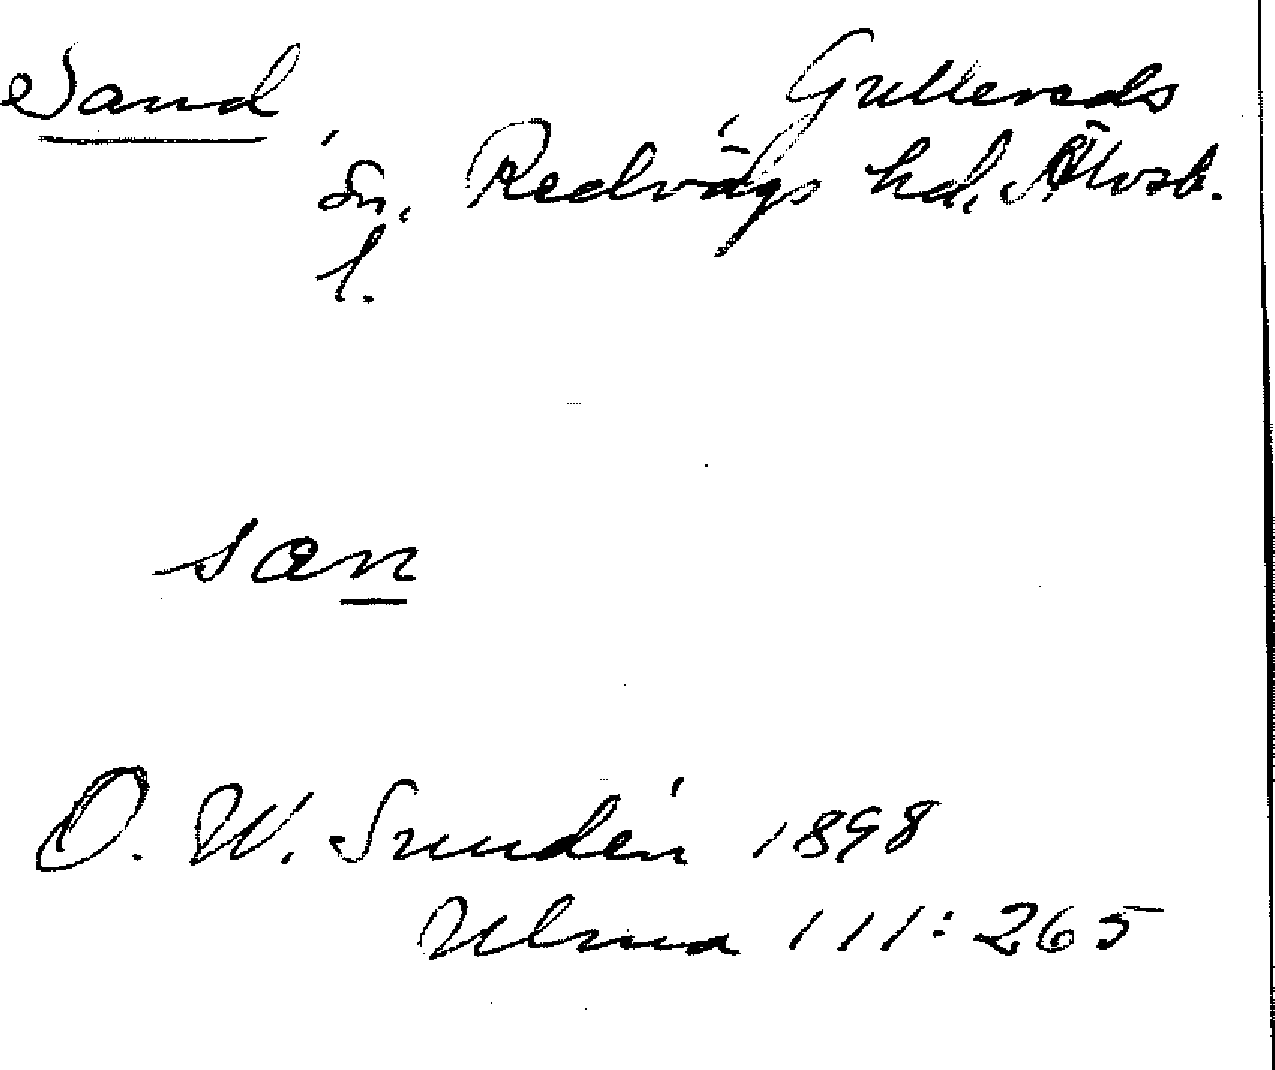 Sand
Gullereds
sn. Redvägs hd, Älvsb.
l.
san
O. W. Sundén 1898
Ulma 111:265